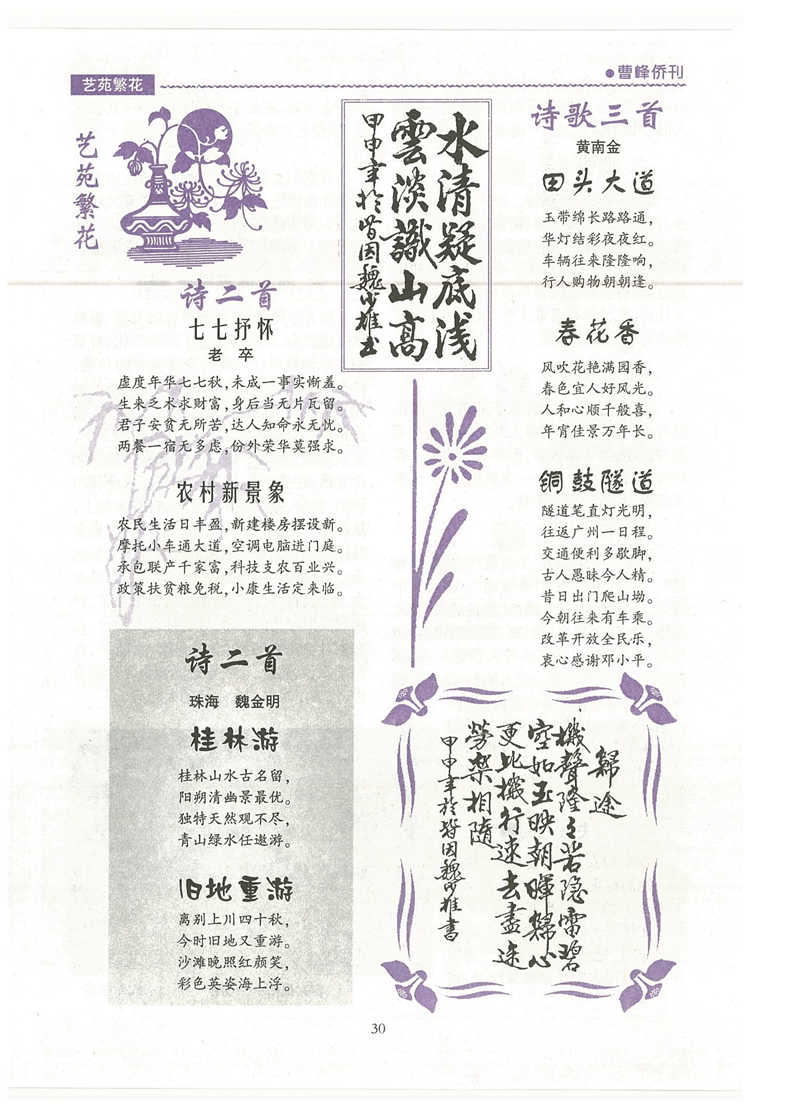 艺苑繁花
●曹峰侨刊
艺苑繁花
诗二首
七七抒怀
老 卒
虚度年华七七秋,未成一事实惭羞。
生来乏术求财富,身后当无片瓦留。
君子安贫无所苦,达人知命永无忧。
两餐一宿无多虑,份外荣华莫强求。
农村新景象
农民生活日丰盈,新建楼房摆设新。
摩托小车通大道,空调电脑进门庭。
承包联产千家富,科技支农百业兴。
政策扶贫粮免税,小康生活定来临。
诗二首
珠海 魏金明
桂林游
桂林山水古名留,
阳朔清幽景最优。
独特天然观不尽,
青山绿水任遨游。
旧地重游
离别上川四十秋,
今时旧地又重游。
沙滩晚照红颜笑,
彩色英姿海上浮。
水清疑底浅
雲淡識山高
甲申年於皆因魏少雄书
诗歌三首
黄南金
田头大道
玉带绵长路路通,
华灯结彩夜夜红。
车辆往来隆隆响,
行人购物朝朝逢。
春花香
风吹花艳满园香,
春色宜人好风光。
人和心顺千般喜,
年宵佳景万年长。
铜鼓隧道
隧道笔直灯光明,
往返广州一日程。
交通便利多歇脚,
古人愚昧今人精。
昔日出门爬山坳,
今朝往来有车乘。
改革开放全民乐,
衷心感谢邓小平。
歸途
機聲隆之若隐雷碧
空如玉映朝暉歸心
更比機行速去盡途
勞樂相隨
甲申年於皆因魏少雄書
30